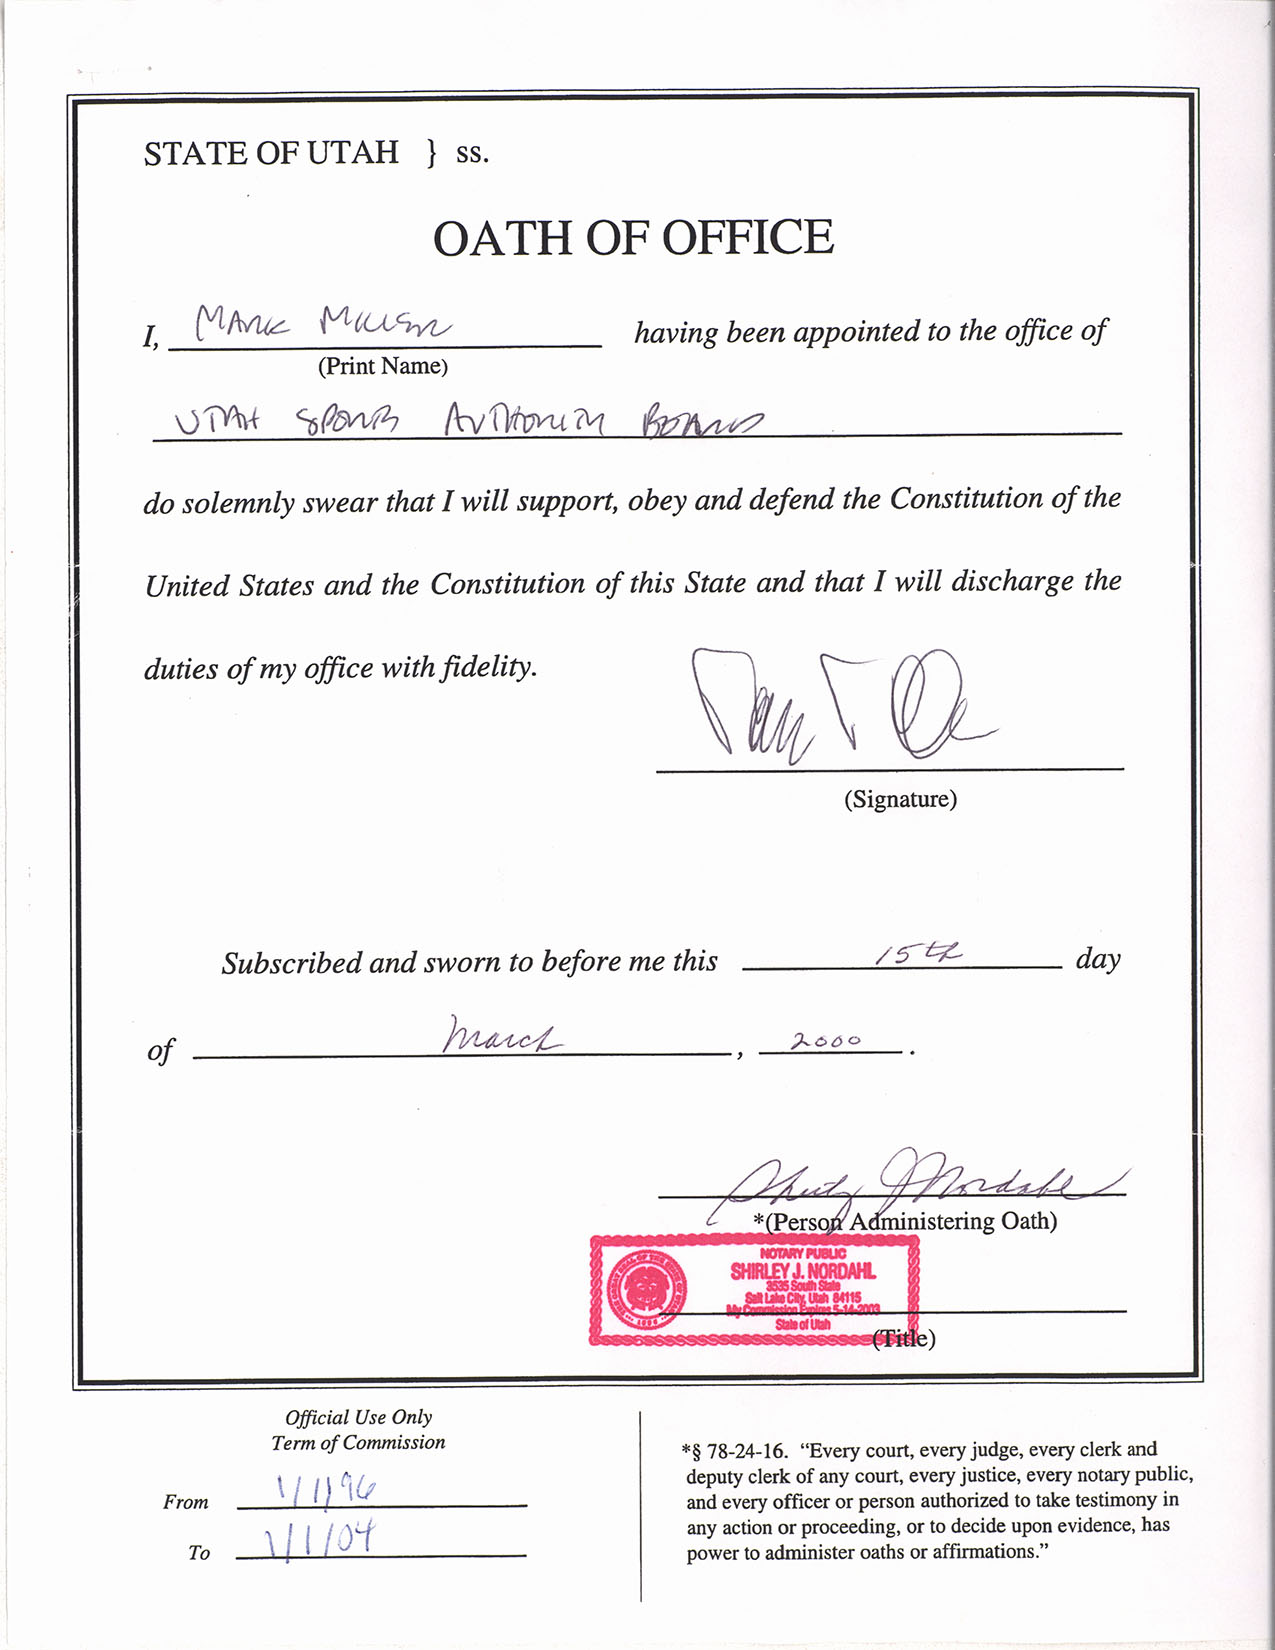 STATE OF UTAH } ss.
OATH OF OFFICE
I, MARK MILLER having been appointed to the office of
(Print Name)
UTAH SPORTS AUTHORITY BOARD
do solemnly swear that I will support, obey and defend the Constitution of the
United States and the Constitution of this State and that I will discharge the
duties of my office with fidelity.
(Signature)
Subscribed and sworn to before me this 15th day
of March, 2000.
Shirley J Nordahl
*(Person Administering Oath)
NOTARY PUBLIC
SHIRLEY J. NORDAHL
3535 South State
Salt Lake City, Utah 84115
My Commission Expires 5-14-2003
State of Utah
(Title)
Official Use Only
Term of Commission
From 1/1/96
To 1/1/04
*§ 78-24-16. “Every court, every judge, every clerk and
deputy clerk of any court, every justice, every notary public,
and every officer or person authorized to take testimony in
any action or proceeding, or to decide upon evidence, has
power to administer oaths or affirmations.”